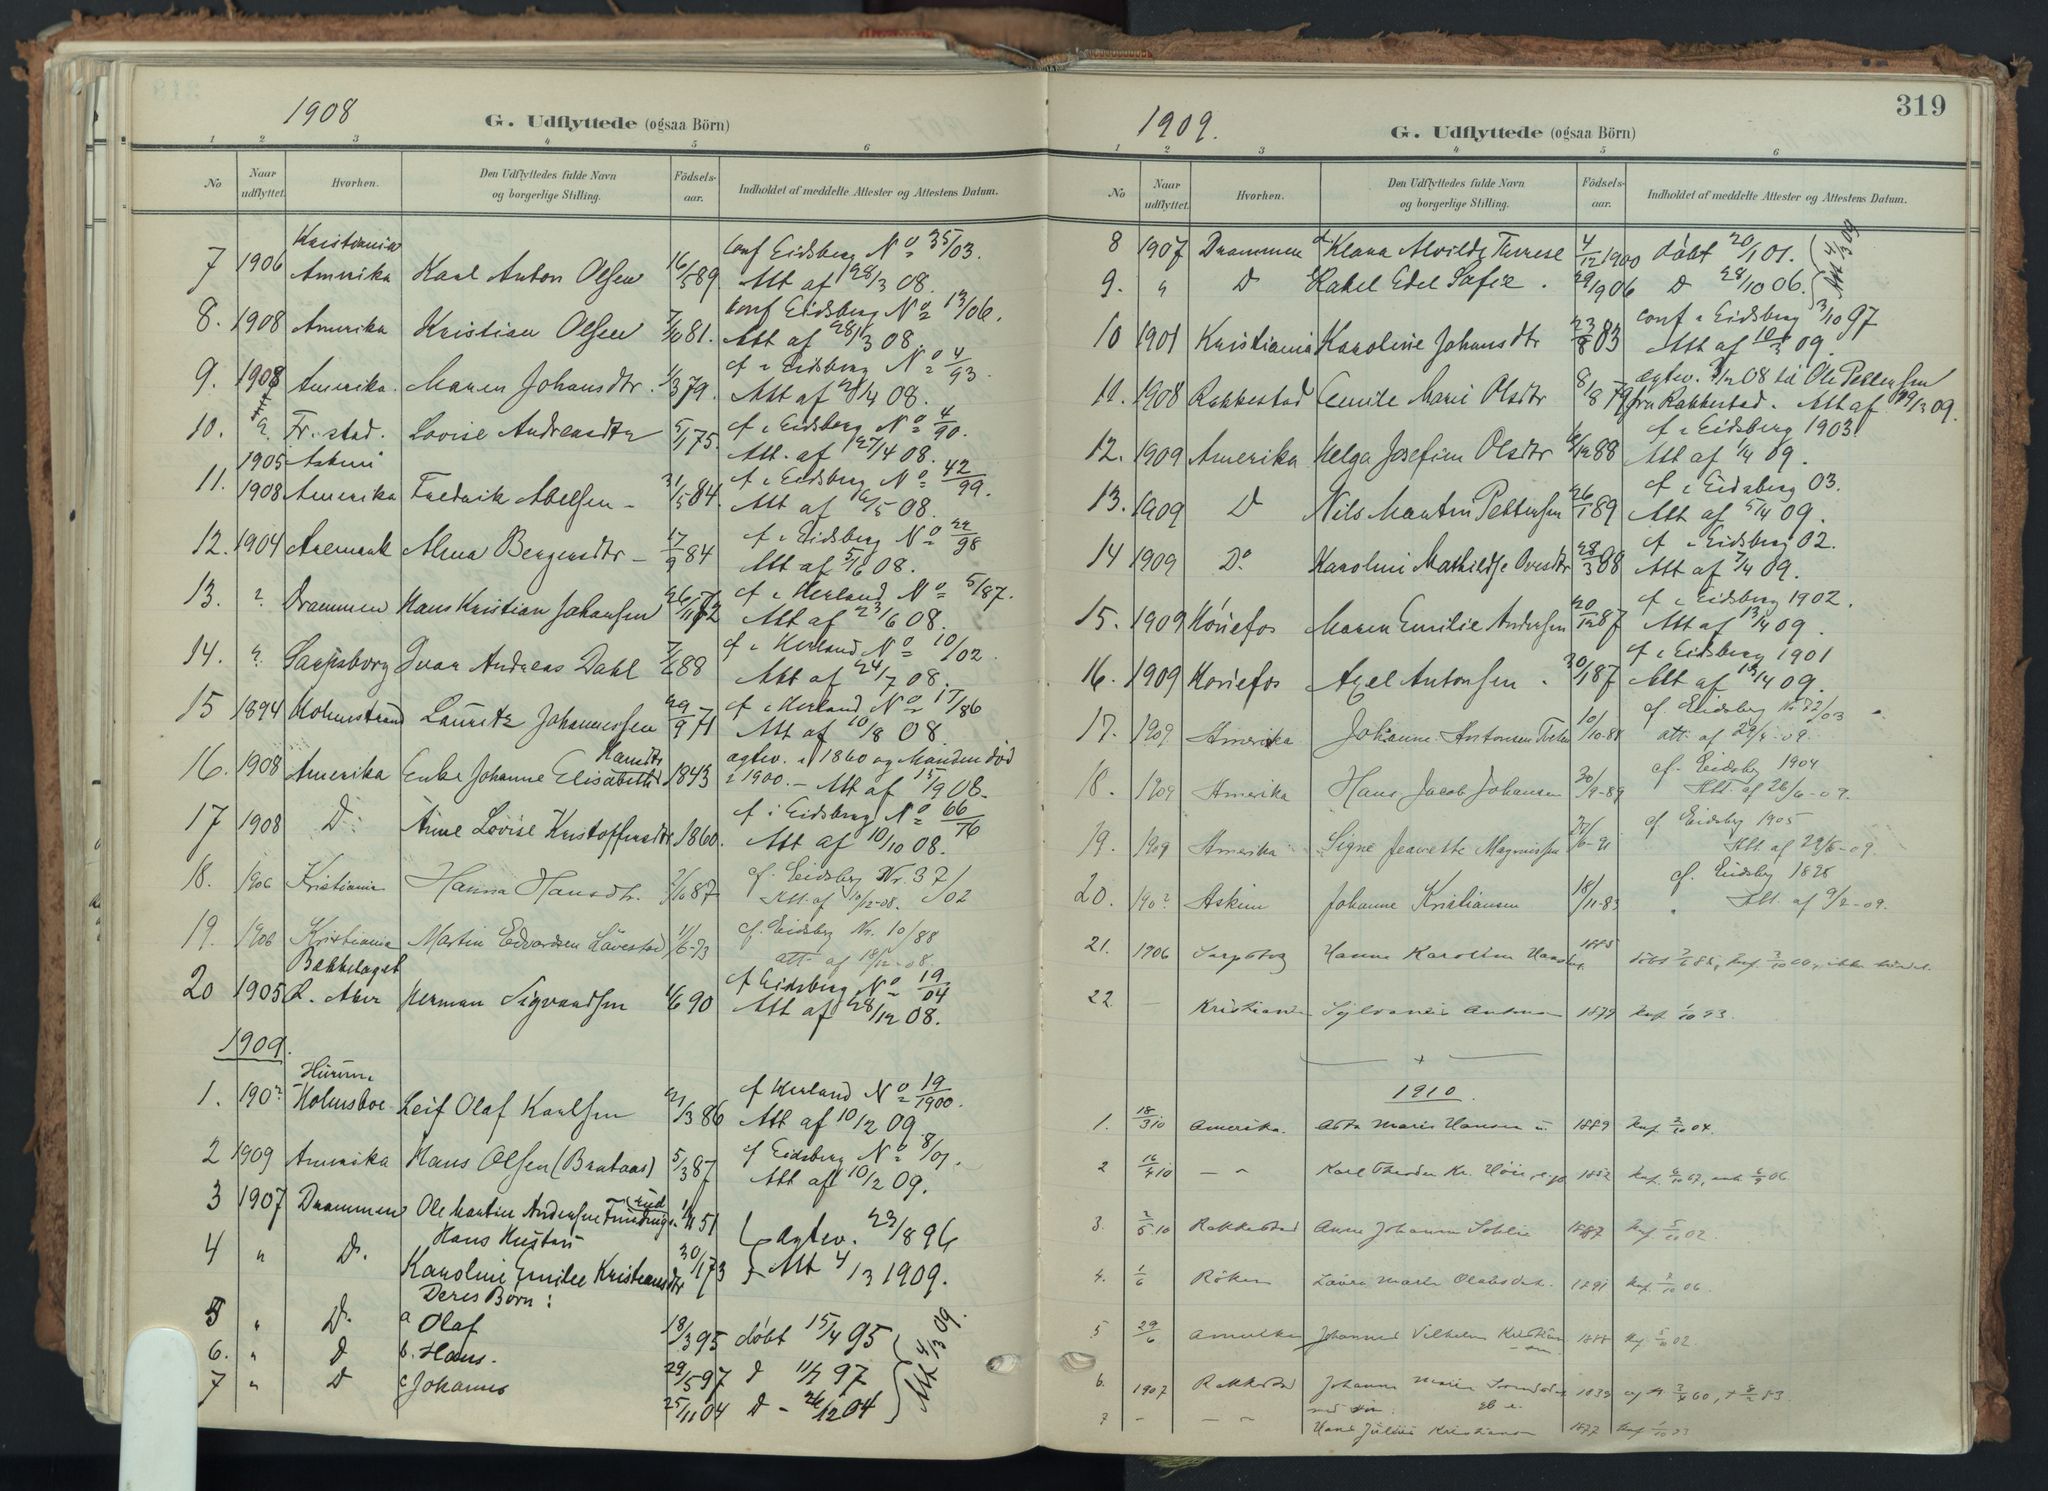 1908
G. Udflyttede (ogsaa Börn)
1 2 3 4 5 6
No
Naar udflyttet.
Hvorhen.
Den Udflyttedes fulde Navn og borgerlige Stilling.
Födselsaar.
Indholdet af meddelte Attester og Attestens Datum.
Kristiania conf Eidsberg No 35/03.
7 1906 Amerika Karl Anton Olsen 16/5 89. Att af 28/3 08.
conf Eidsberg No 13/06.
8. 1908 Amerika Kristian Olsen 7/10 81. Att af 28/3 08.
cf i Eidsberg No 4/93
9. 1908 Amerika. Maren Johansdtr. 1/3 79. Att af 2/4 08.
cf i Eidsberg No 4/90.
10. Fr.stad. Lovise Andreasdtr 5/1 75. Att. af 27/4 08.
1905 Askim cf i Eidsberg No 42/99.
11. 1908 Amerika Fredrik Abelsen 31/5 84. Att af 6/5 08.
cf i Eidsberg No 22/98
12. 1904 Aremark Alma Bergersdtr 17/9 84 Att af 5/6 08.
cf i Herland No 5/87.
13. ? Drammen Hans Kristian Johansen 26/11 72 Att af 23/6 08.
cf i Herland No 10/02
14. ? Sarpsborg Ivar Andreas Dahl 7/2 88 Att af 24/7 08.
cf i Herland No 17/86
15 1894 Holmstrand Lauritz Johannessen 29/9 71 Att af 10/8 08
Hansdtr ægtev. i 1860 og Manden død
16. 1908 Amerika Enke Johanne Elisabeth 1843 i 1900. – Att af 15/9 08.
cf i Eidsberg No 66/76
17 1908 Do Anne Lovise Kristoffersdtr 1860. Att af 10/10 08.
cf. Eidsberg Nr. 37/02
18. 1906 Kristiania Hanna Hansdtr. 2/10 87 Att. af 10/12-08.
cf. Eidsberg Nr. 10/88
19. 1906 Kristiania Martin Edvardsen Løvestad 11/6-73 att. af 18/12-08.
Bækkelaget cf Eidsberg No 19/04
20 1905 Ø. Aker Herman Sigvaardsen 11/6 90 Att af 28/12 08.
1909.
Hurum. cf Herland No 19/1900.
1. 190? Holmsboe Leif Olaf Karlsen 21/3 86 Att af 10/2 09.
cf Eidsberg No 8/01.
2 1909 Amerika Hans Olsen (Brataas) 5/3 87 Att af 10/2 09.
3 1907 Drammen Ole Martin Andersen 1/11 51
Hans Hustru ægtev. 23/8 96
4 " Do. Karoline Emilie Kristiansdtr 30/1 73 Att 4/3 1909.
Deres Børn:
5 " Do. a Olaf 18/3 95 døbt 15/4 95
6. " Do b. Hans. 29/5 97 Do 11/7 97
7 " Do c Johannes 25/11 04 Do - 26/12 04
Att 4/3 09.
1909.
319
G. Udflyttede (ogsaa Börn)
1 2 3 4 5 6
No
Naar udflyttet.
Hvorhen.
Den Udflyttedes fulde Navn og borgerlige Stilling.
Födselsaar.
Indholdet af meddelte Attester og Attestens Datum.
8 1907 Drammen d Klara Alvilde Therese 4/12 1900 døbt 20/1 01.
9. " Do e Rakel Edel Sofie. 29/1 1906 Do 28/10 06.
Att 4/3 09
conf i Eidsberg 3/10 97
10 1901 Kristiania Karoline Johansdtr 23/8 83 Att af 10/3 09.
ægtev. 2/12 08 til Ole Pettersen
11. 1908 Rakkestad Emilie Marie Olsdtr 8/8 79 fra Rakkestad. Att af 29/3 09.
cf i Eidsberg 1903
12. 1909 Amerika Helga Josefine Olsdtr 12/12 88 Att af 1/4 09.
cf i Eidsberg 03.
13. 1909 Do Nils Martin Pettersen 26/1 89 Att af 5/4 09.
cf i Eidsberg 02.
14 1909 Do. Karoline Mathilde 28/3 88 Att af 7/4 09.
cf i Eidsberg 1902.
15. 1909 Hønefos Maren Emilie Andersen 20/12 87 Att af 13/4 09.
cf i Eidsberg 1901
16. 1909 Hønefos Axel Antonsen. 30/1 87 Att af 13/4 09.
cf. Eidsberg Nr. 72/03
17. 1909 Amerika Johanne Antonsen 10/10-88 att. af 29/4-09.
cf. Eidsberg 1904
18. 1909 Amerika Hans Jacob Johansen 30/9-89 Att. af 26/6-09.
cf. Eidsberg 1905
19. 1909 Amerika Signe Jeanette Magnussen /6-91 Att. af 29/6-09.
cf. Eidsberg 1898
20. 190? Askim Johanne Kristiansen 18/11-83 Att. af 9/2-09.
21. 1906 Sarpsborg Hanna Karoline 1885
22. — Kristiania Sylvanie 1879 Konf. 1/10 93.
1910.
1. 18/3 10 Amerika. Asta Marie Hansen u. 1889 Konf. 2/10 04.
2 16/4 10 — " Karl Theodor Kr. 1852 Konf. 6/10 67,
3. 2/5 10 Rakkestad Anne Johanne 1887 Konf. 5/10 02.
4. 1/6 Røken Laura Marie Olausdtr. 1891 Konf. 7/10 06.
5 29/6 Amerika Johannes Vilhelm Kristiansen 1888 Konf. 5/10 02
6. 1907 Rakkestad Johanne Marie 1839
7 — — " Hans Julius Kristiansen 1877